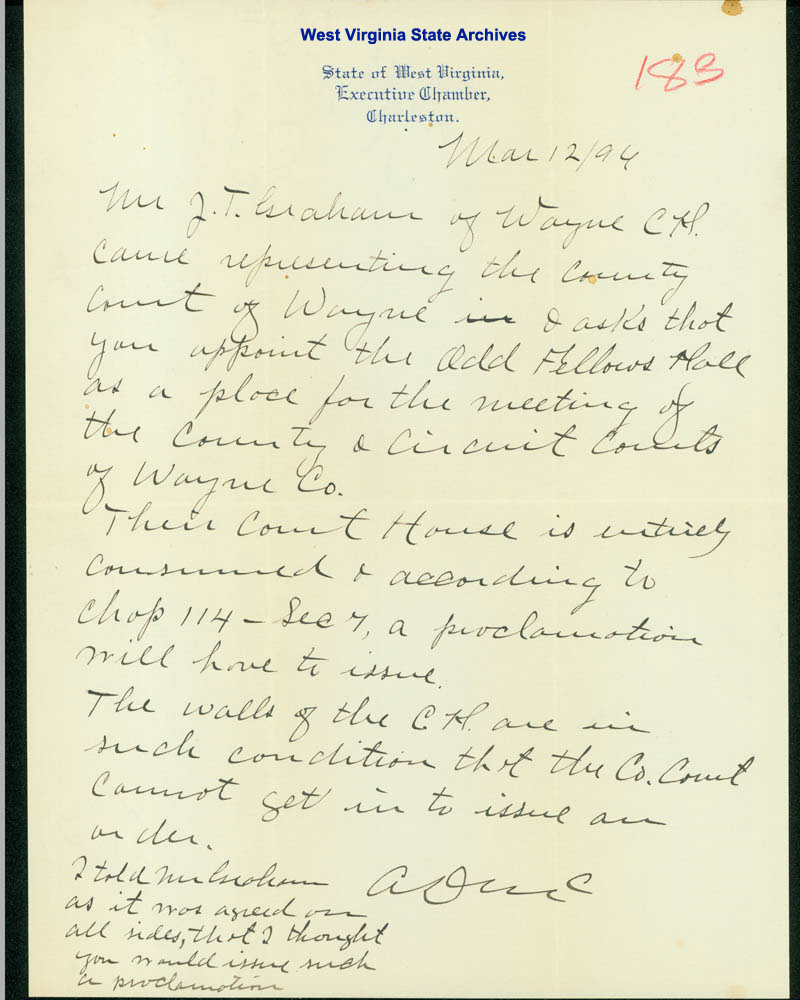 West Virginia State Archives
State of West Virginia,
Executive Chamber,
Charleston.
183
Mar 12/94
Mr J. T. Graham of Wayne C.H.
came representing the County
Court of Wayne in & asks that
you appoint the Odd Fellows Hall
as a place for the meeting of
the County & Circuit Courts
of Wayne Co.
Their Court House is entirely
consumed & according to
Chap 114 - Sec 7, a proclamation
will have to issue.
The walls of the C.H. are in
such condition that the Co. Court
cannot get in to issue an
order.
I told Mr Graham
as it was agreed on
all sides, that I thought
you would issue such
a proclamation